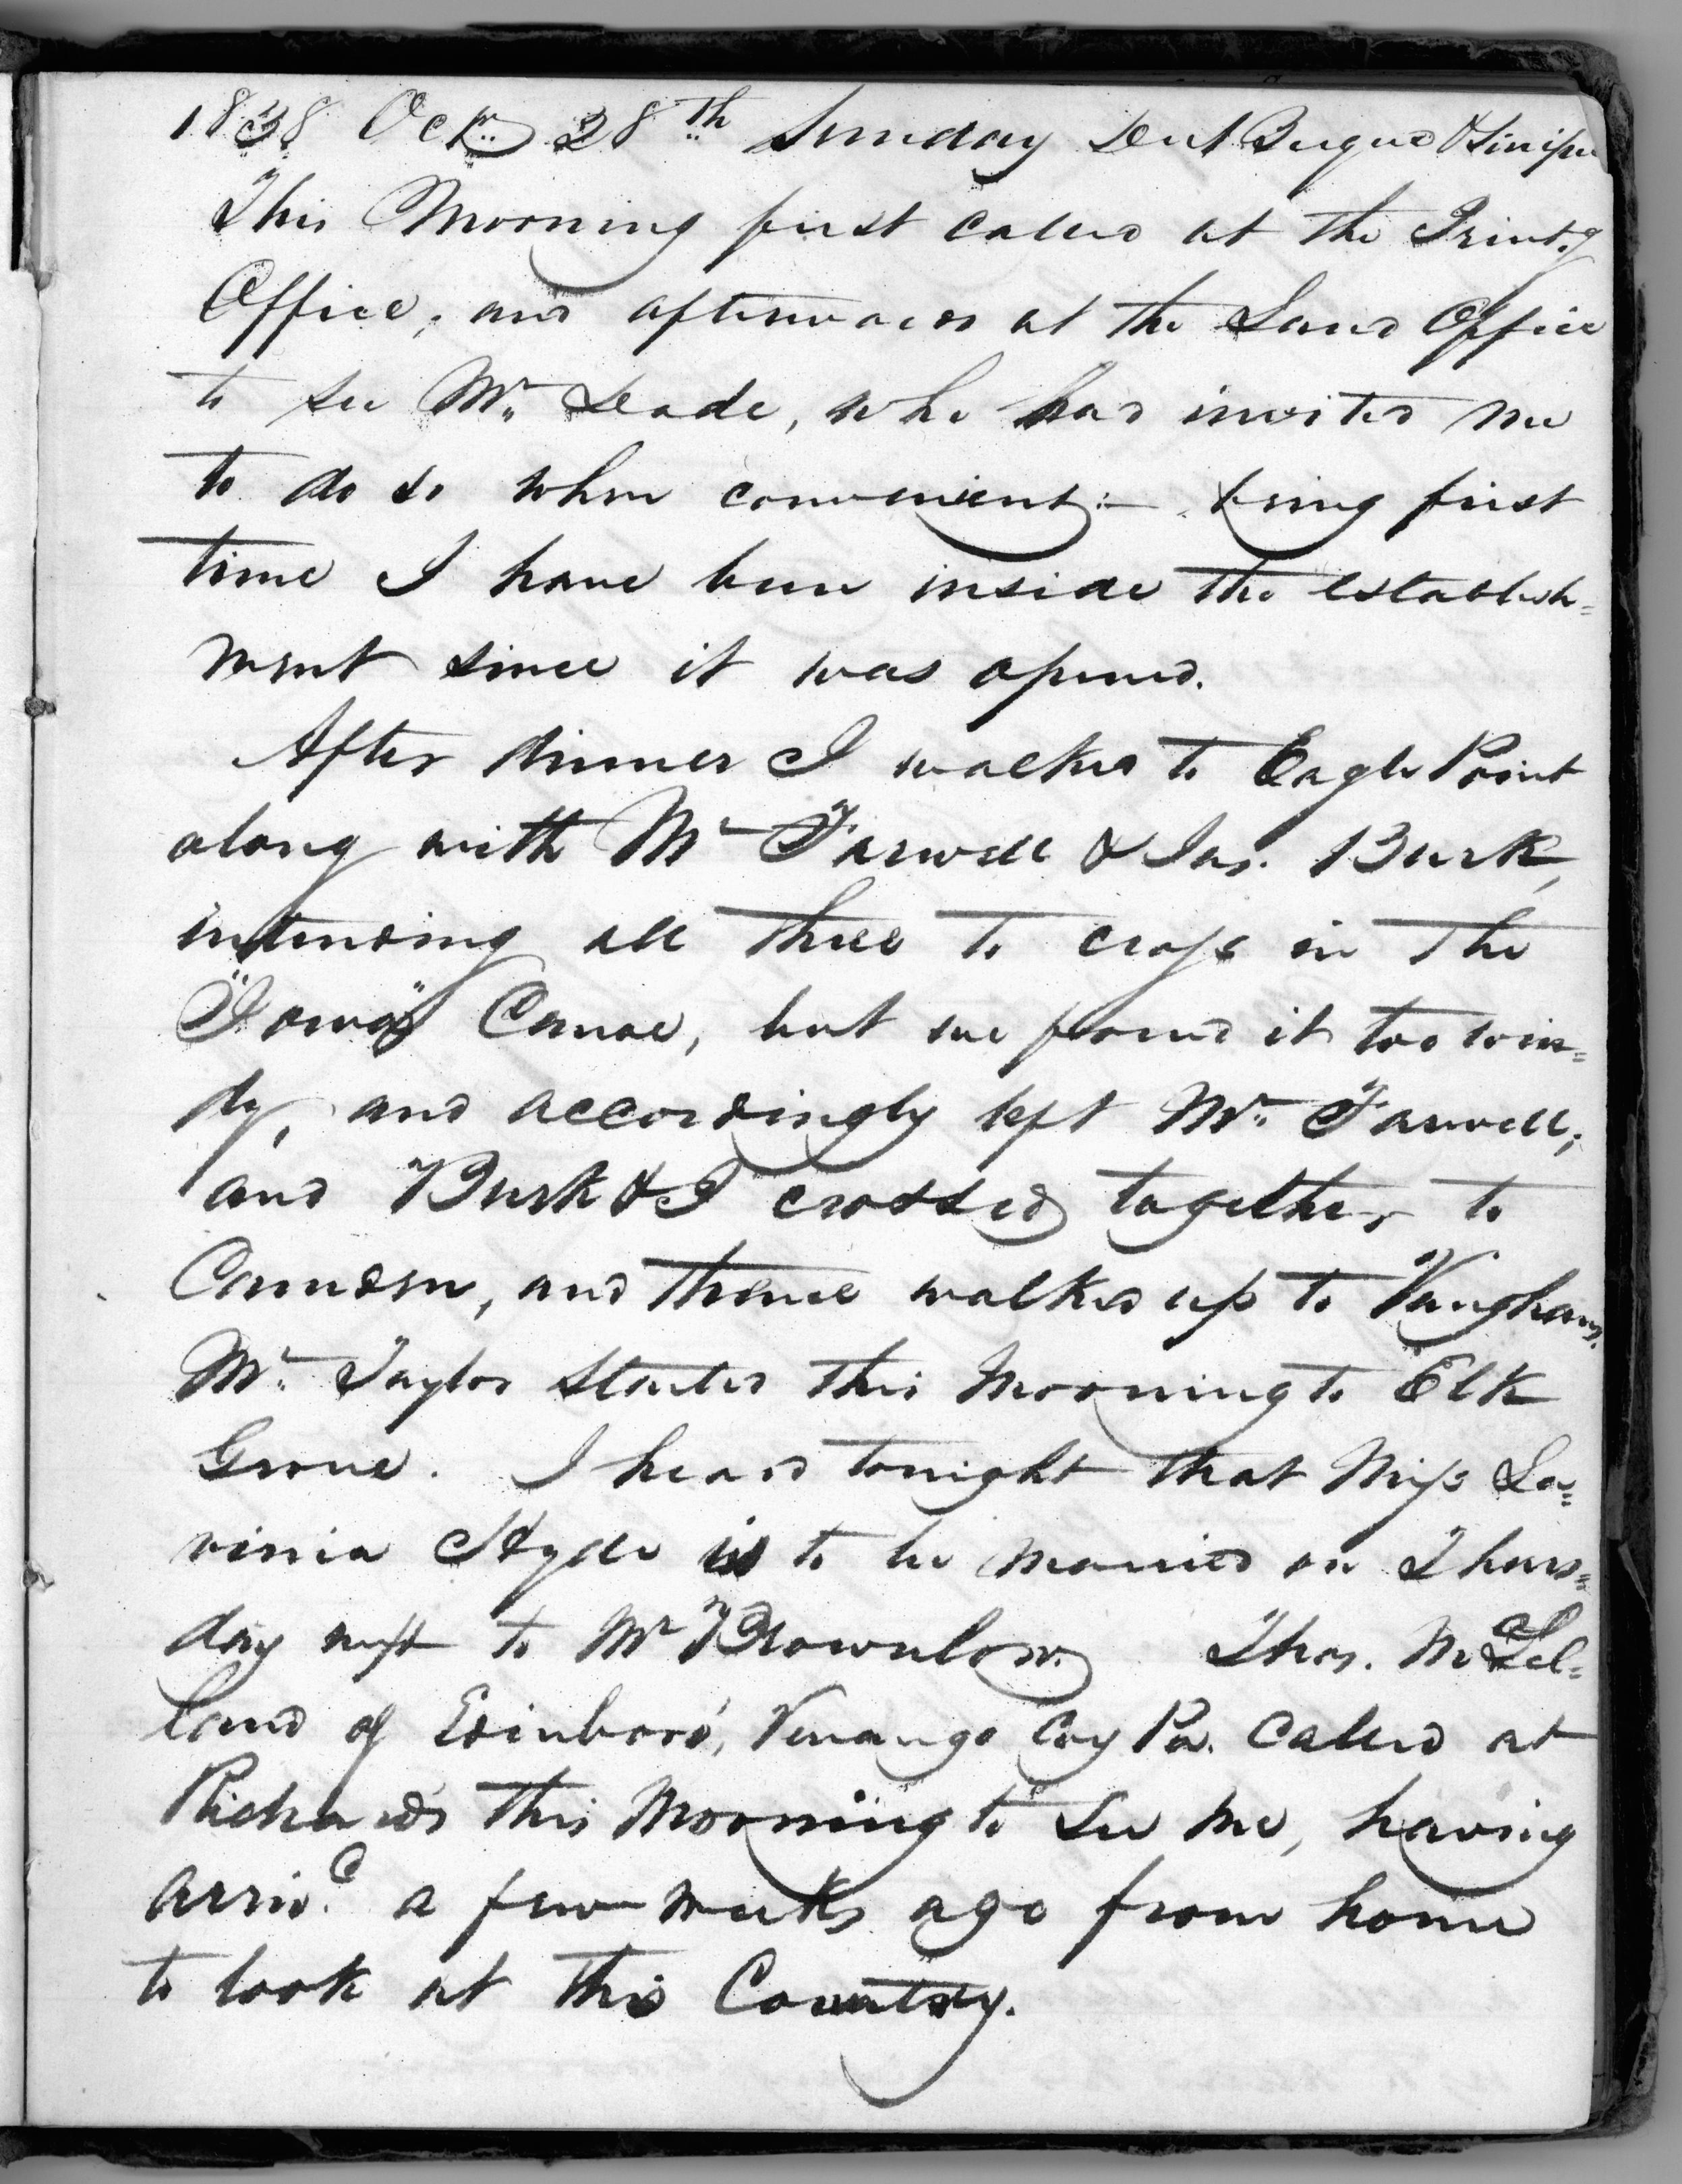 1838 Octr. 28th Sunday Du Buque & Sinipe
This Morning first called at the Print.g
Office, and afterwards at the Land Office
to see Mr. Deade, who had invited me
to do so when convenient:— being first
time I have been inside the establish=
ment since it was opened.
After dinner I walked to Eagle Point
along with Mr Farwell & Jas. Burk,
intending all three to cross in the
"Iowa" Canoe, but we found it too win=
dy, and accordingly left Mr. Farwell;
and Burk & I crossed together to
Camden, and thence walked up to Vaughans.
Mr. Taylor started this Morning to Elk
Grove. I heard tonight that Miss La=
vinia Hyde is to be married on Thurs=
day next to Mr Brownlow. Thos. McLel=
land of Edinboro', Venango Coy Pa. called at
Richards this Morning to see me, having
arriv.d a few weeks ago from home
to look at this Country.